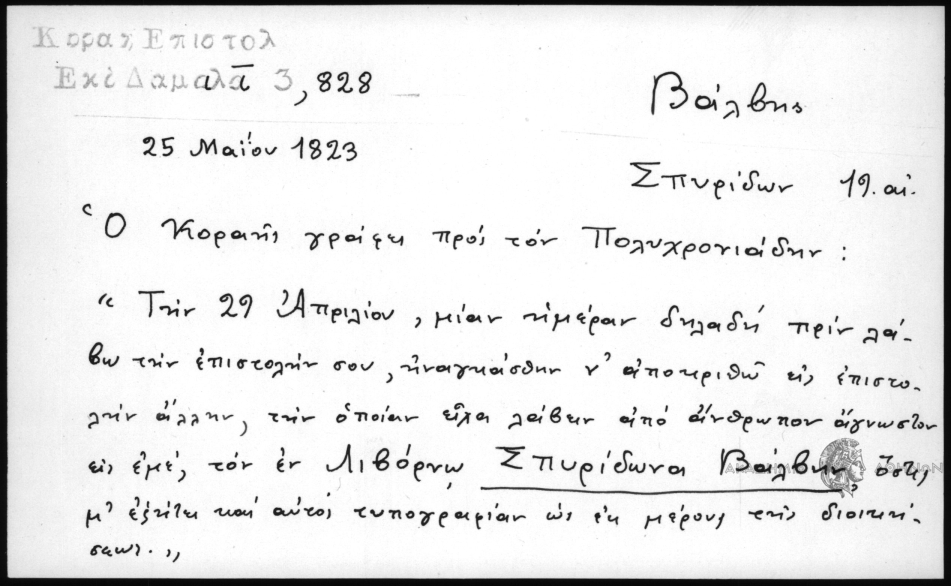 Κοραη Επιστολ
Εκδ Δαμαλᾶ 3, 828
Βάλβης
25 Μαΐου 1823
Σπυρίδων 19. αἰ.
Ὁ Κοραῆς γράφει πρός τόν Πολυχρονιάδην :
“ Τήν 29 Ἀπριλίου, μίαν ἡμέραν δηλαδή πρίν λά-
βω τήν ἐπιστολήν σου, ἠναγκάσθην ν' ἀποκριθῶ εἰς ἐπιστο-
λήν ἄλλην, τήν ὁποίαν εἶχα λάβειν ἀπό ἄνθρωπον ἄγνωστον
εἰς ἐμέ, τόν ἐν Λιβόρνῳ Σπυρίδωνα Βάλβην, ὅστις
μ' ἐζήτει καί αὐτός τυπογραφίαν ὡς ἐκ μέρους τῆς διοική-
σεως. ,,